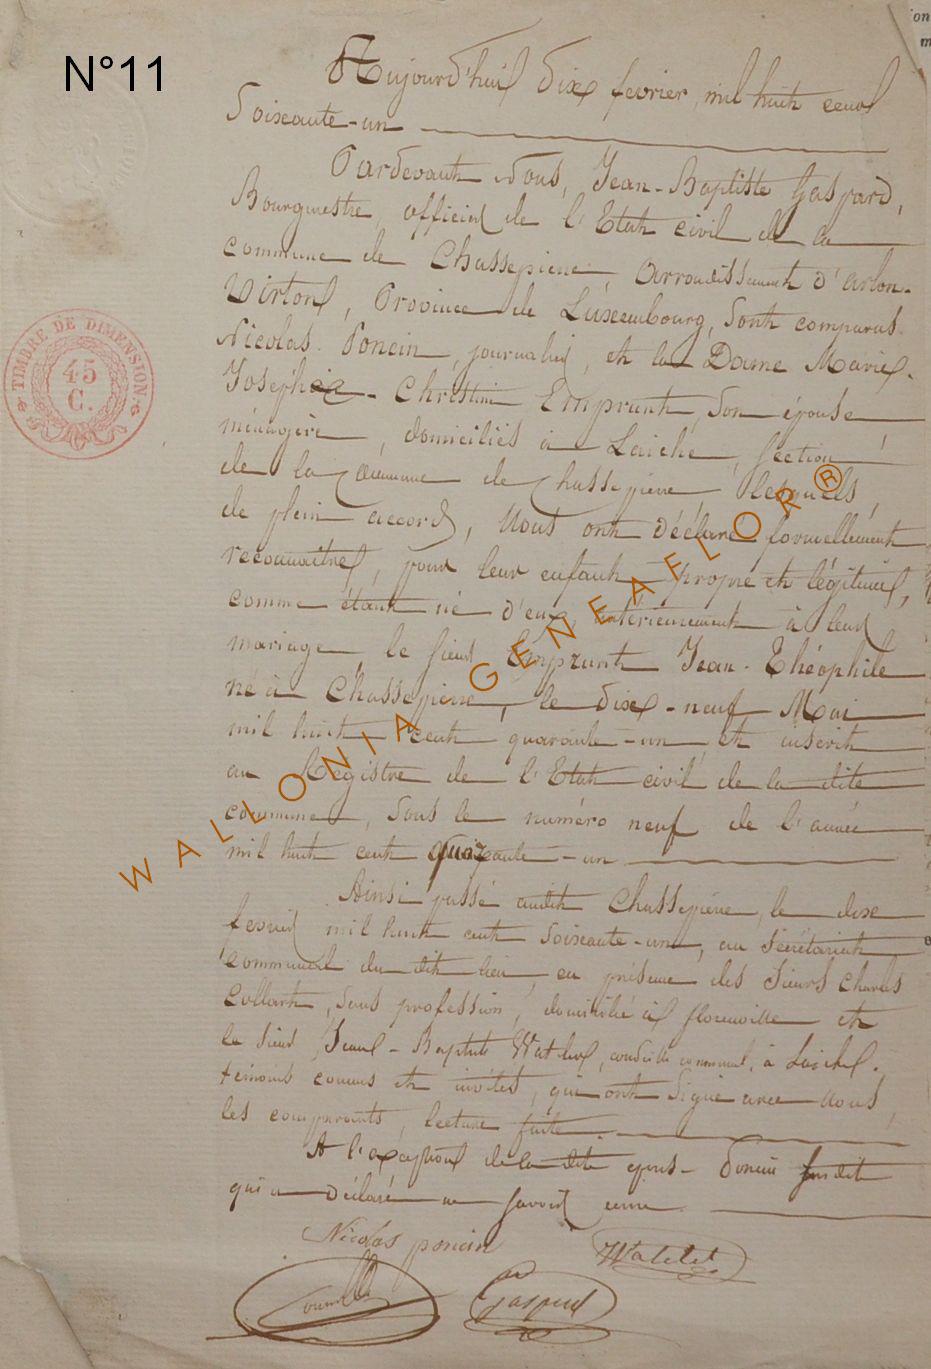 N°11
Aujourd'hui dix fevrier mil huit cent
Soixante-un
Pardevant Nous, Jean-Baptiste Gaspard,
Bourgmestre, officier de l'Etat civil de la
commune de Chassepierre arrondissement d'arlon-
Virton, Province de Luxembourg, Sont comparus
Nicolas Poncin, journalier, et la Dame Marie-
Joséphine-Christine Emprunt, Son épouse
ménagère, domiciliés à Laiche, section
de la commune de Chassepierre, lesquels,
de plein accord, Nous ont déclaré formellement
reconnaître, pour leur enfant propre et légitime,
comme étant né d'eux, antérieurement à leur
mariage, le sieur Emprunt Jean-Théophile
né à Chassepierre, le dix-neuf Mai
mil huit cent quarante-un, et inscrit
au Registre de l'Etat civil de la dite
commune, Sous le numéro neuf de l'année
mil huit cent quarante-un
Ainsi passé audit Chassepierre, le dix
fevrier mil huit cent Soixante-un, au Sécrétariat
communal du dit lieu, en présence des Sieurs Charles
Collart, Sans profession, domicilié à florenville et
le Sieur Jean-Baptiste Watelet, conseiller communal, à Laiche.
témoins connus et invités, qui ont Signé avec Nous,
les comparants, lecture faite.
A l'exception de la dite épouse Poncin susdite
qui a déclaré ne savoir écrire
Nicolas poncin
JWatelet
Gaspard
TIMBRE DE DIMENSION
45
C.
WALLONIA GENEAFLOR®